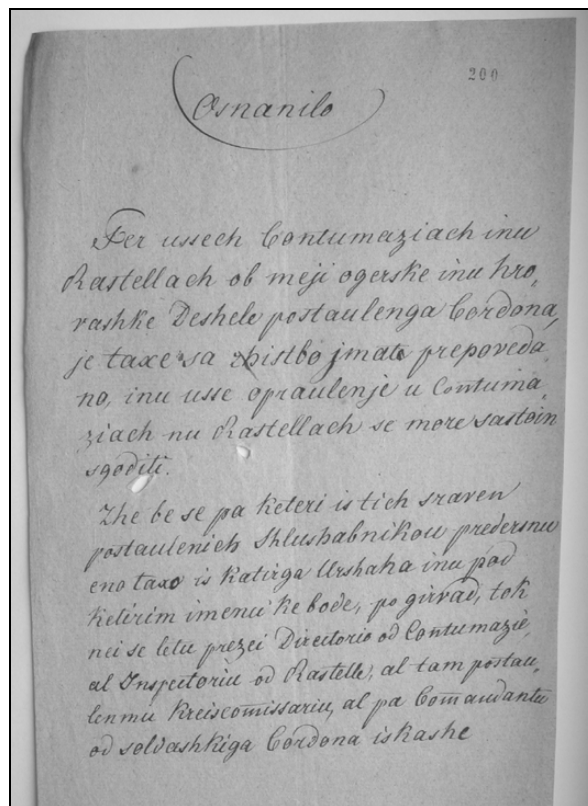 200
Osnanilo
Per ussech Contumaziach inu
Rastellach ob meji ogerske inu hro„
vashke Deshele postaulenga Cordona,
je taxe sa zhistbo jmate prepoveda„
no, inu usse opraulenje u Contuma„
ziach nu Rastellach se more sastoin
sgoditi.
Zhe be se pa keteri is tich sraven
postaulenich Shlushabnikou prederSnu
eno taxo is katirga Urshaha inu pod
ketirim imenu ke bode, po girvad, tok
nei se letu prezei Directorio od Contumazie,
al Inspectoriu od Rastelle, al tam postau„
lenmu Kreiscomissariu, al pa Comandantu
od soldashkiga Cordona iskashe